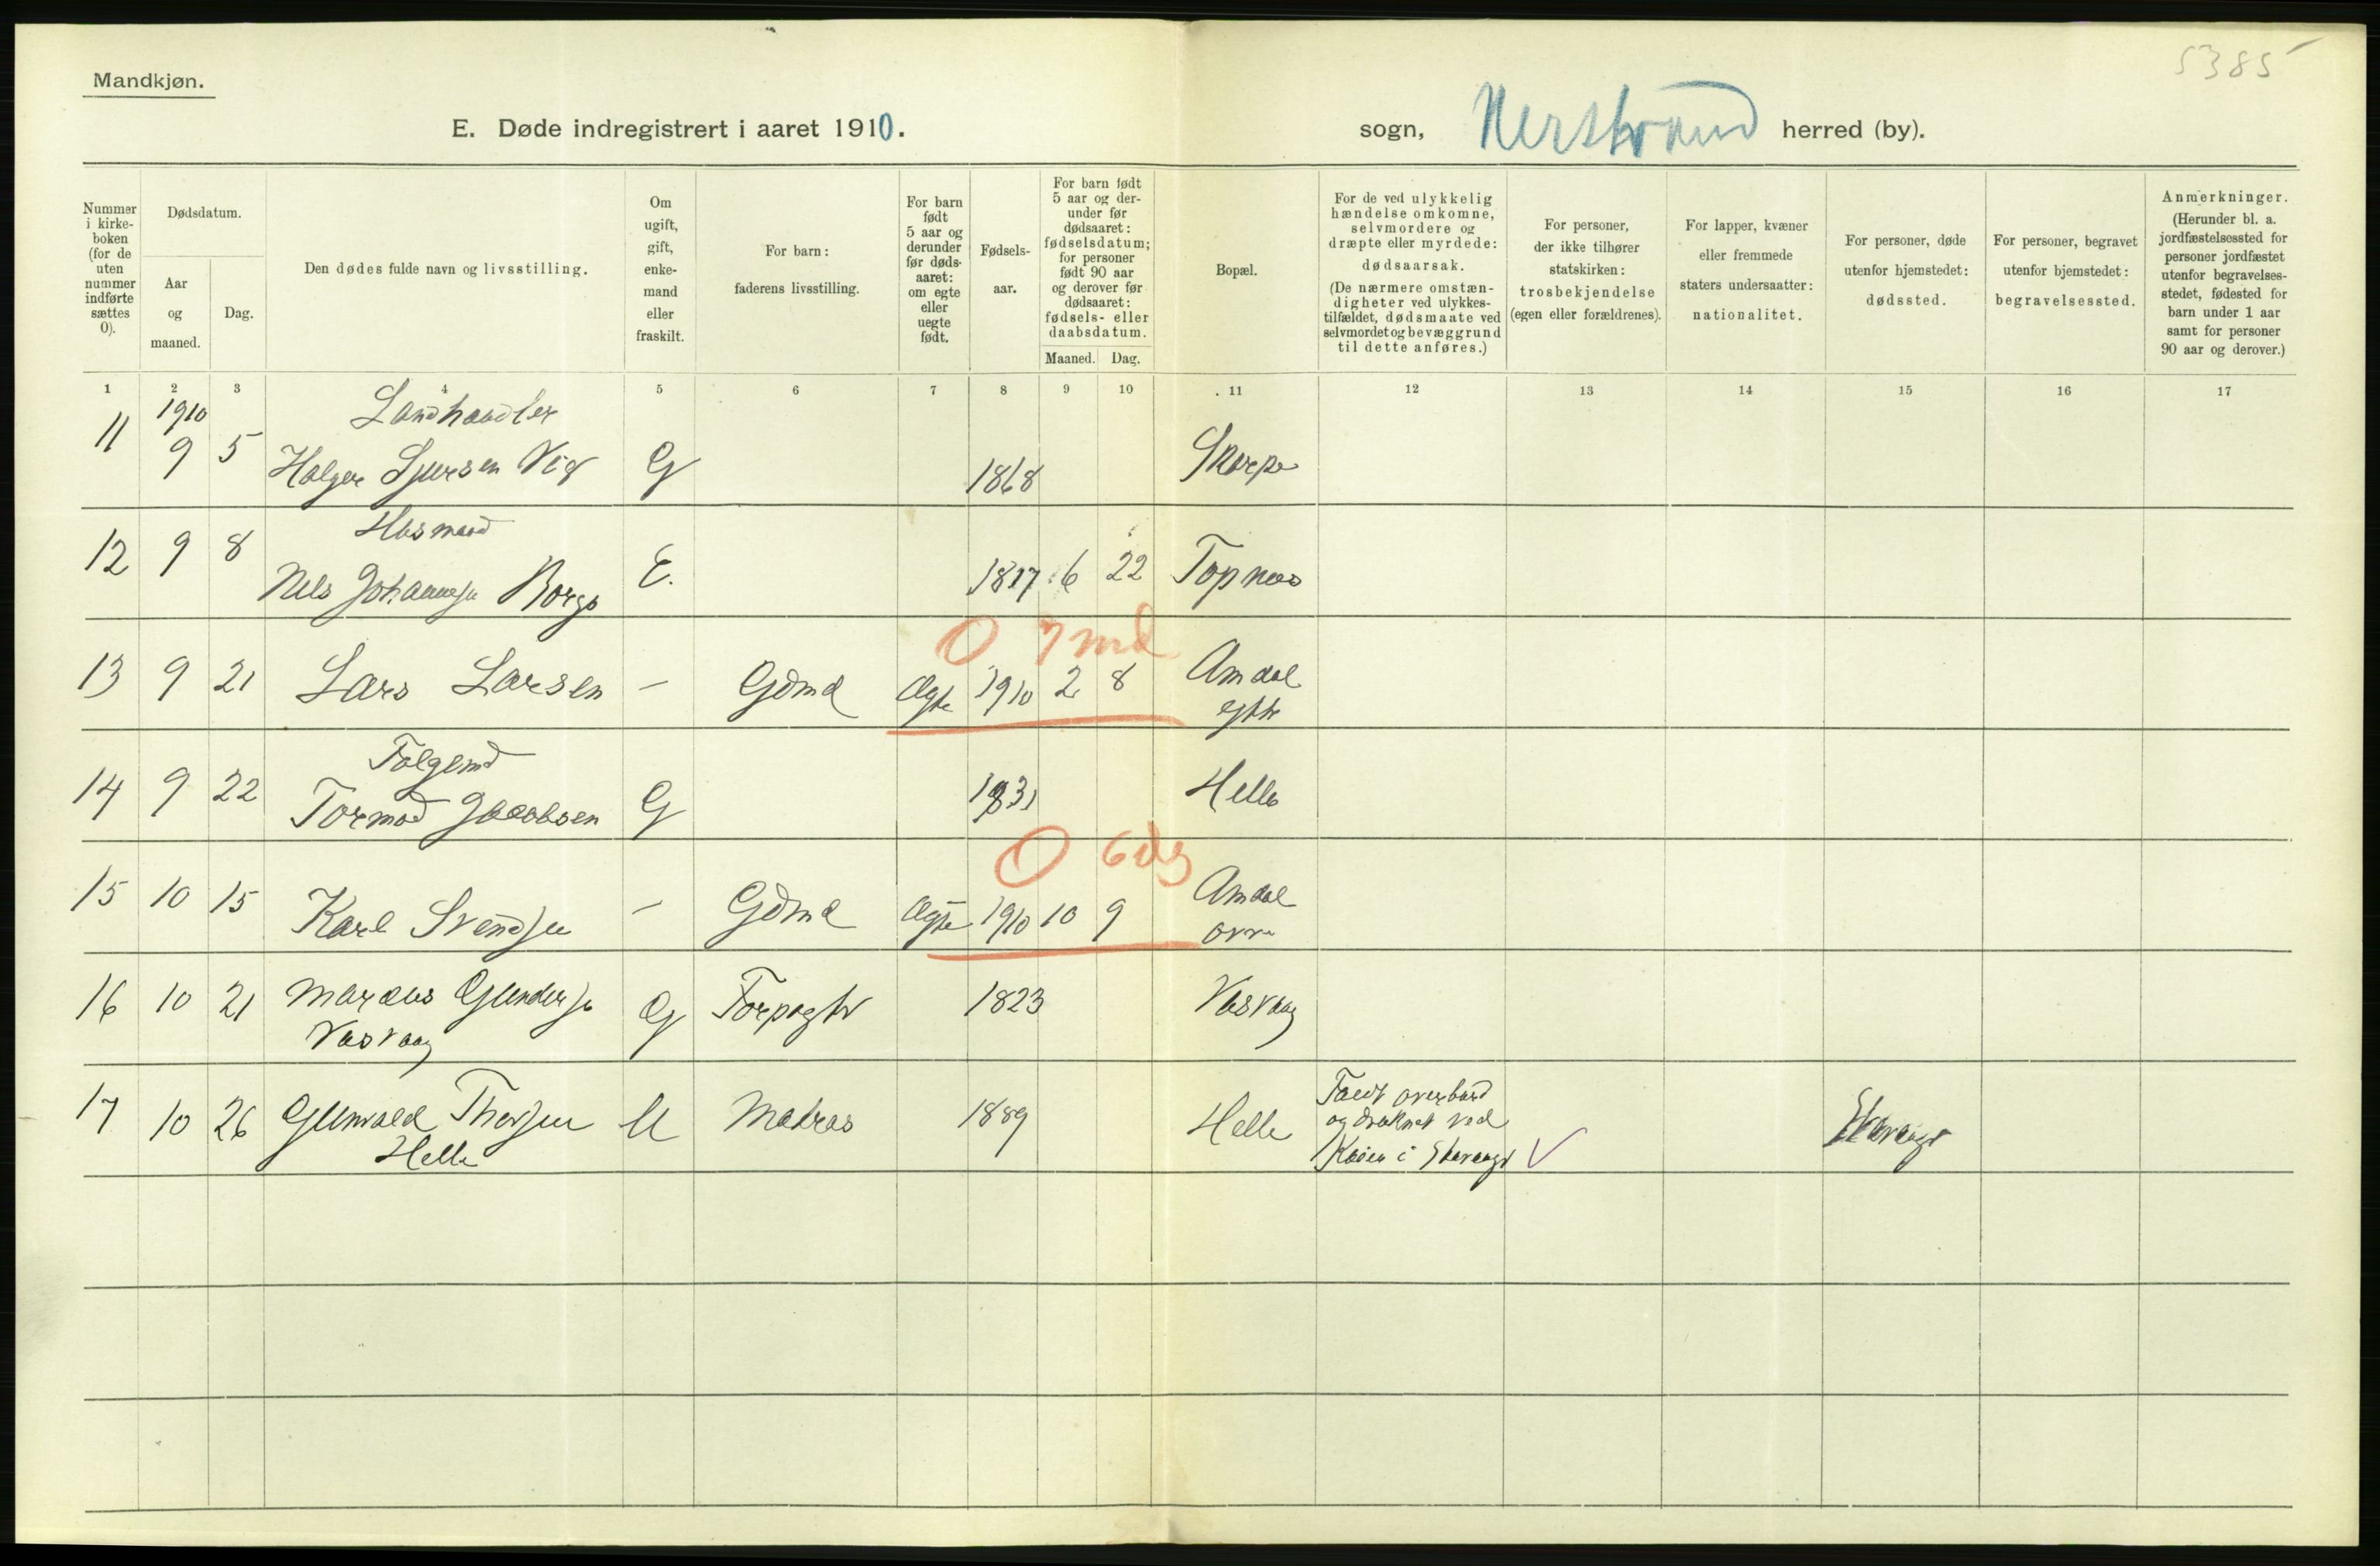 5385
Mandkjøn.
E. Døde indregistrert i aaret 1910.
sogn, Nerstrand herred (by).
Nummer i kirke-boken (for de uten nummer indførte sættes 0).
Dødsdatum.
Aar og maaned.
Dag.
Den dødes fulde navn og livsstilling.
Om ugift, gift, enke-mand eller fraskilt.
For barn: faderens livsstilling.
For barn født 5 aar og derunder før døds-aaret: om egte eller uegte født.
Fødsels-aar.
For barn født 5 aar og der-under før dødsaaret: fødselsdatum; for personer født 90 aar og derover før dødsaaret: fødsels- eller daabsdatum.
Maaned. Dag.
Bopæl.
For de ved ulykkelig hændelse omkomne, selvmordere og dræpte eller myrdede: dødsaarsak. (De nærmere omstæn-digheter ved ulykkes-tilfældet, dødsmaate ved selvmordet og bevæggrund til dette anføres.)
For personer, der ikke tilhører statskirken: trosbekjendelse (egen eller forældrenes).
For lapper, kvæner eller fremmede staters undersaatter: nationalitet.
For personer, døde utenfor hjemstedet: dødssted.
For personer, begravet utenfor hjemstedet: begravelsessted.
Anmerkninger. (Herunder bl. a. jordfæstelsessted for personer jordfæstet utenfor begravelses-stedet, fødested for barn under 1 aar samt for personer 90 aar og derover.)
1 2 3 4 5 6 7 8 9 10 11 12 13 14 15 16 17
1910 Landhandler
11 9 5 Holger Sjursen Vig G 1868 Skorpe
Husmand
12 9 8 Nils Johannesen Borgo E. 1817 6 22 Topnes
0 7 md
13 9 21 Lars Larsen — Gdmd Ægte 1910 2 8 Amdal
Folgemd
14 9 22 Tormod Jacobsen G 1831 Helle
0 6 dg
15 10 15 Karl Svendsen — Gdmd Ægte 1910 10 9 Amdal
øvre
16 10 21 Marcus Gundersen G Forpagtr 1823 Vasvaag
Vasvaag
17 10 26 Gunvald Thorsen U Matros 1889 Helle Faldt overbord Stavanger
Helle og druknet ved
Kaien i Stavanger